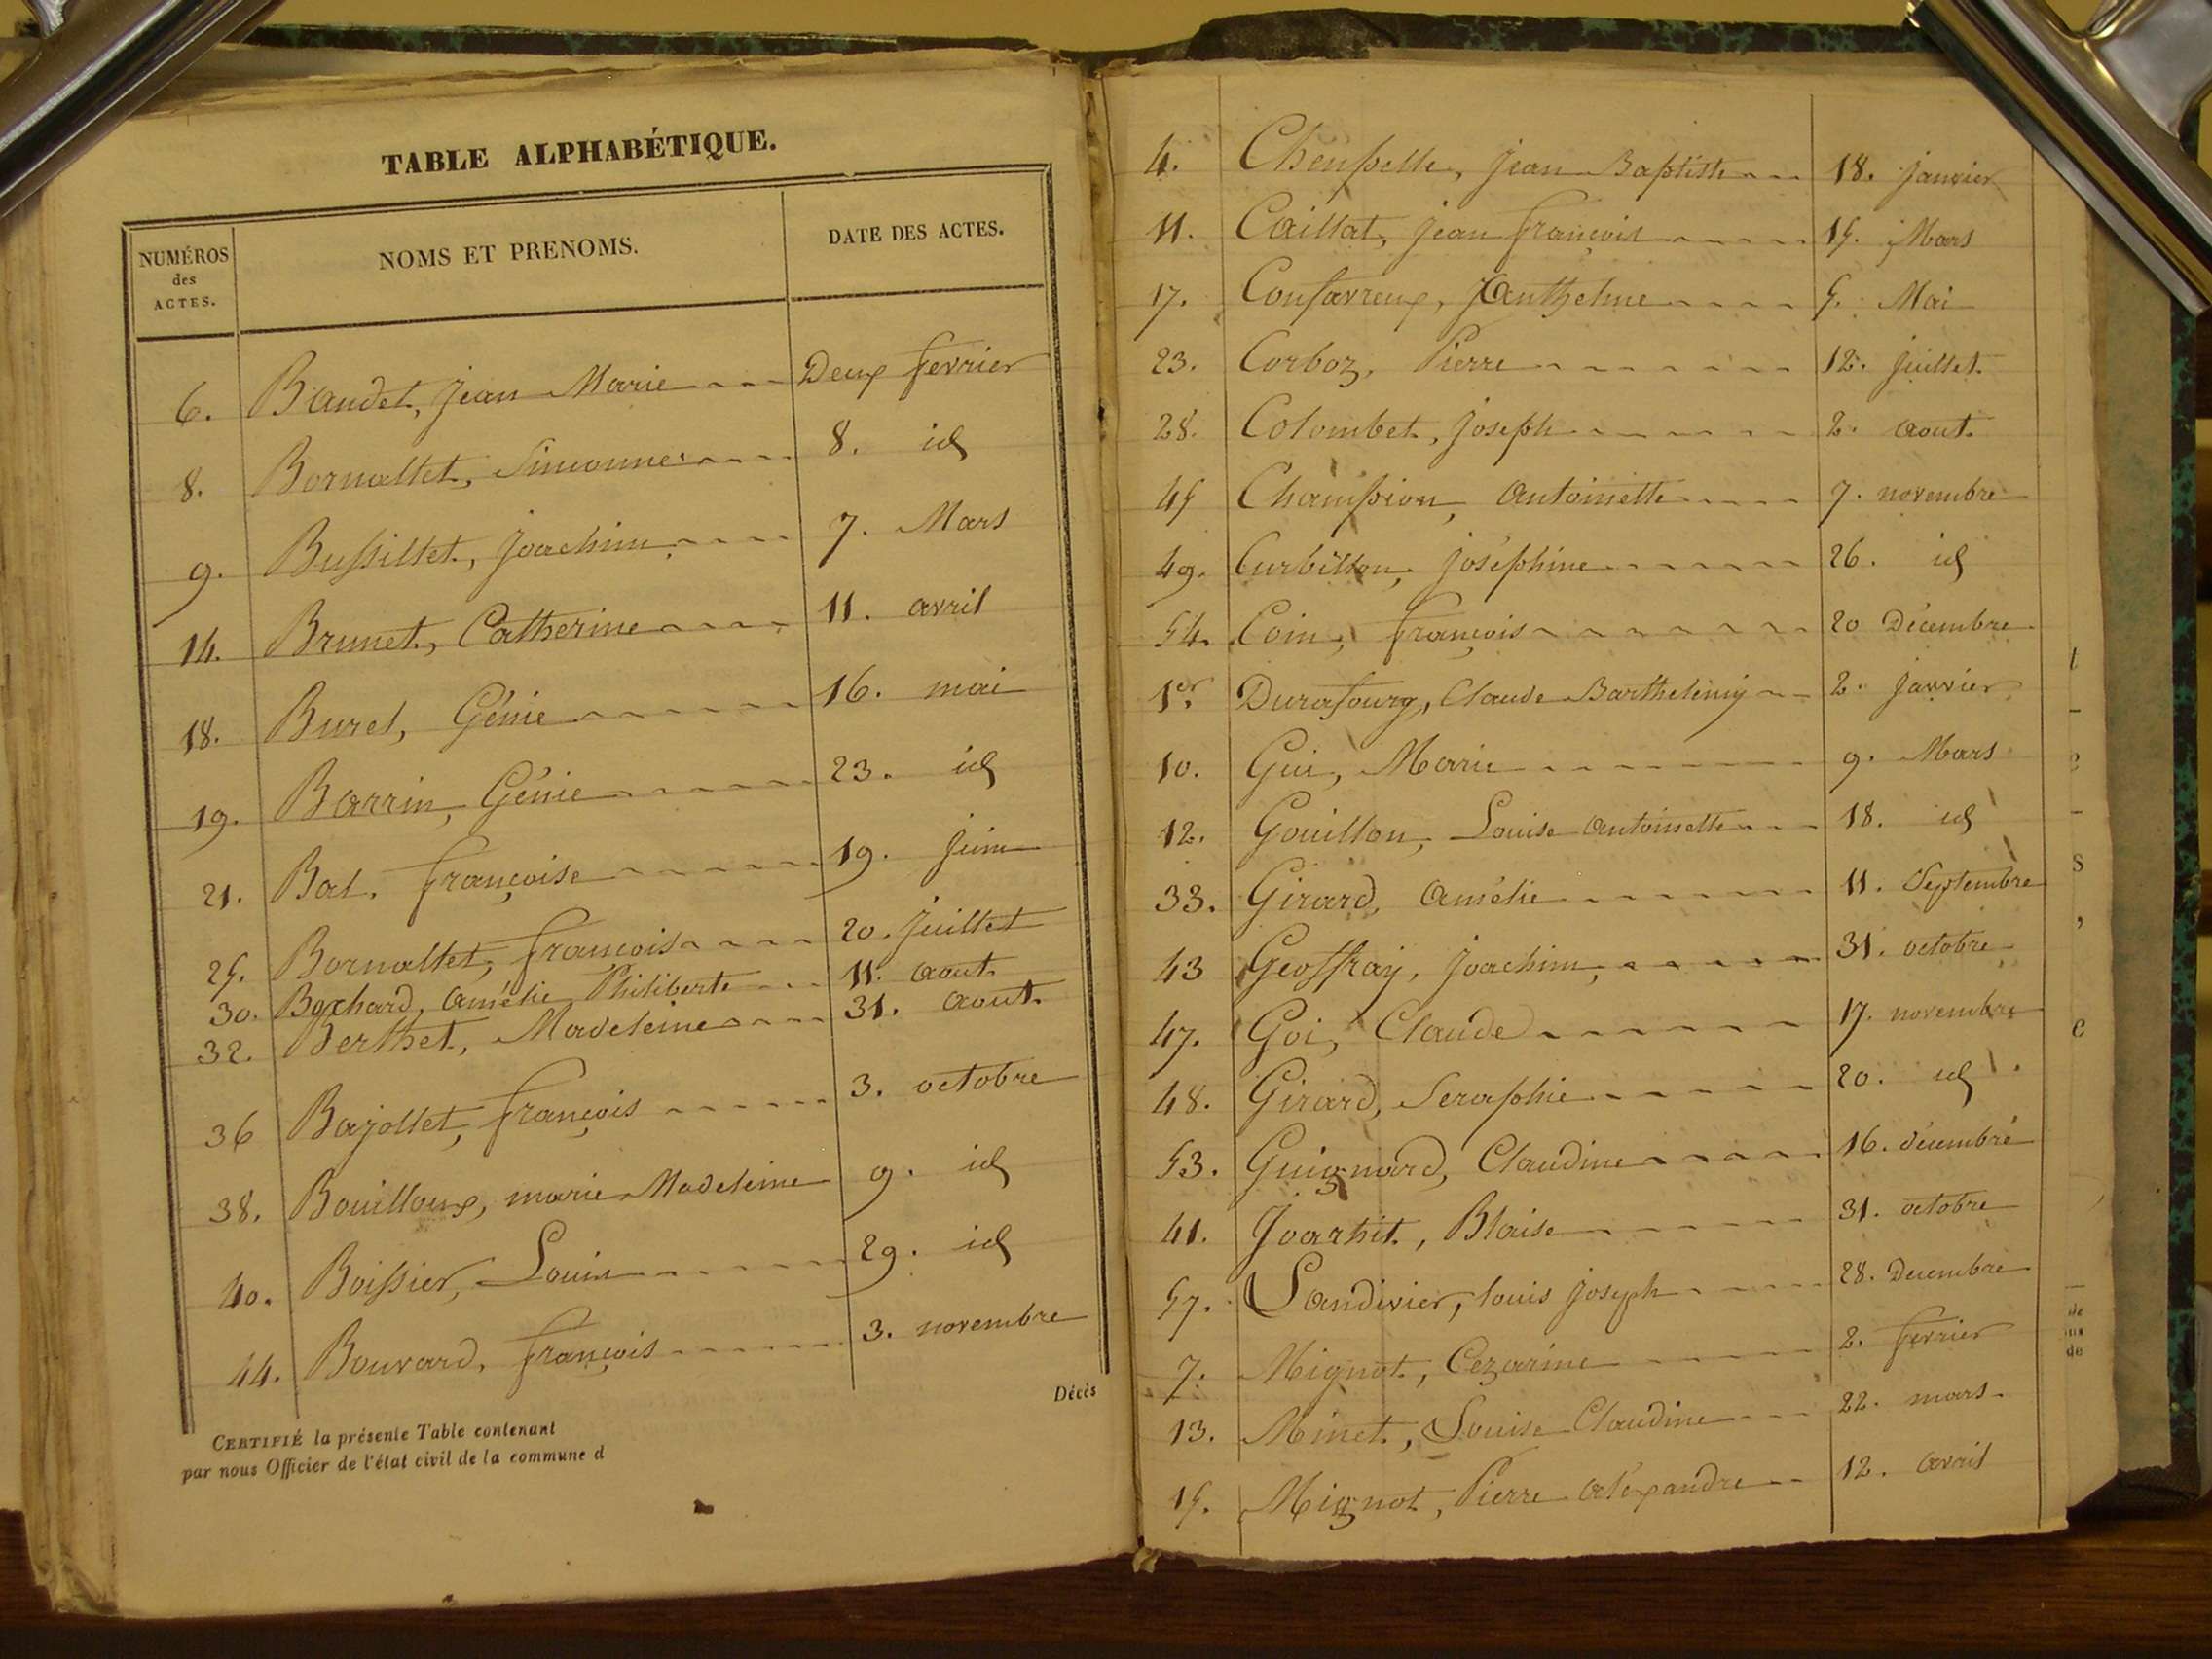 TABLE ALPHABÉTIQUE.
NUMÉROS des ACTES. NOMS ET PRENOMS. DATE DES ACTES.
6. Baudet, jean Marie Deux fevrier
8. Bornattet, Simonne 8. id
9. Bussillet, joachim 7. Mars
14. Brunet, Catherine 11. avril
18. Buret, Génie 16. mai
19. Barrin, Génie 23. id
21. Bal, françoise 19. juin
25. Bornattet, françois 20. juillet
30. Bochard, Amélie Philiberte 11. aout
32. Berthet, Madeleine 31. aout
36 Bajollet, françois 3. octobre
38. Bouilloux, marie Madeleine 9. id
40. Boissier, Louis 29. id
44. Bouvard, françois 3. novembre
Décès
CERTIFIÉ la présente Table contenant
par nous Officier de l'état civil de la commune d
4. jean Baptiste 18. janvier
11. Caillat, jean françois 15. Mars
17. Confavreux, Anthelme 5. Mai
23. Corboz, Pierre 12. juillet
28. Colombet, joseph 2. aout
45 Champion, Antoinette 7. novembre
49. Curbillon, joséphine 26. id
54. Coin, françois 20 Décembre
1er Durafourg, Claude Barthelémy 2. janvier
10. Gui, Marie 9. Mars
12. Gouillon, Louise Antoinette 18. id
33. Girard, Amélie 11. Septembre
43 Geoffray, joachim 31. octobre
47. Goi, Claude 17. novembre
48. Girard, Seraphie 20. id
53. Guignard, Claudine 16. décembre
41. Blaise 31. octobre
57. Landivier, louis joseph 28. Decembre
7. Mignot, Cezarine 2. fevrier
13. Minet, Louise Claudine 22. mars
15. Mignot, Pierre aléxandre 12. avril